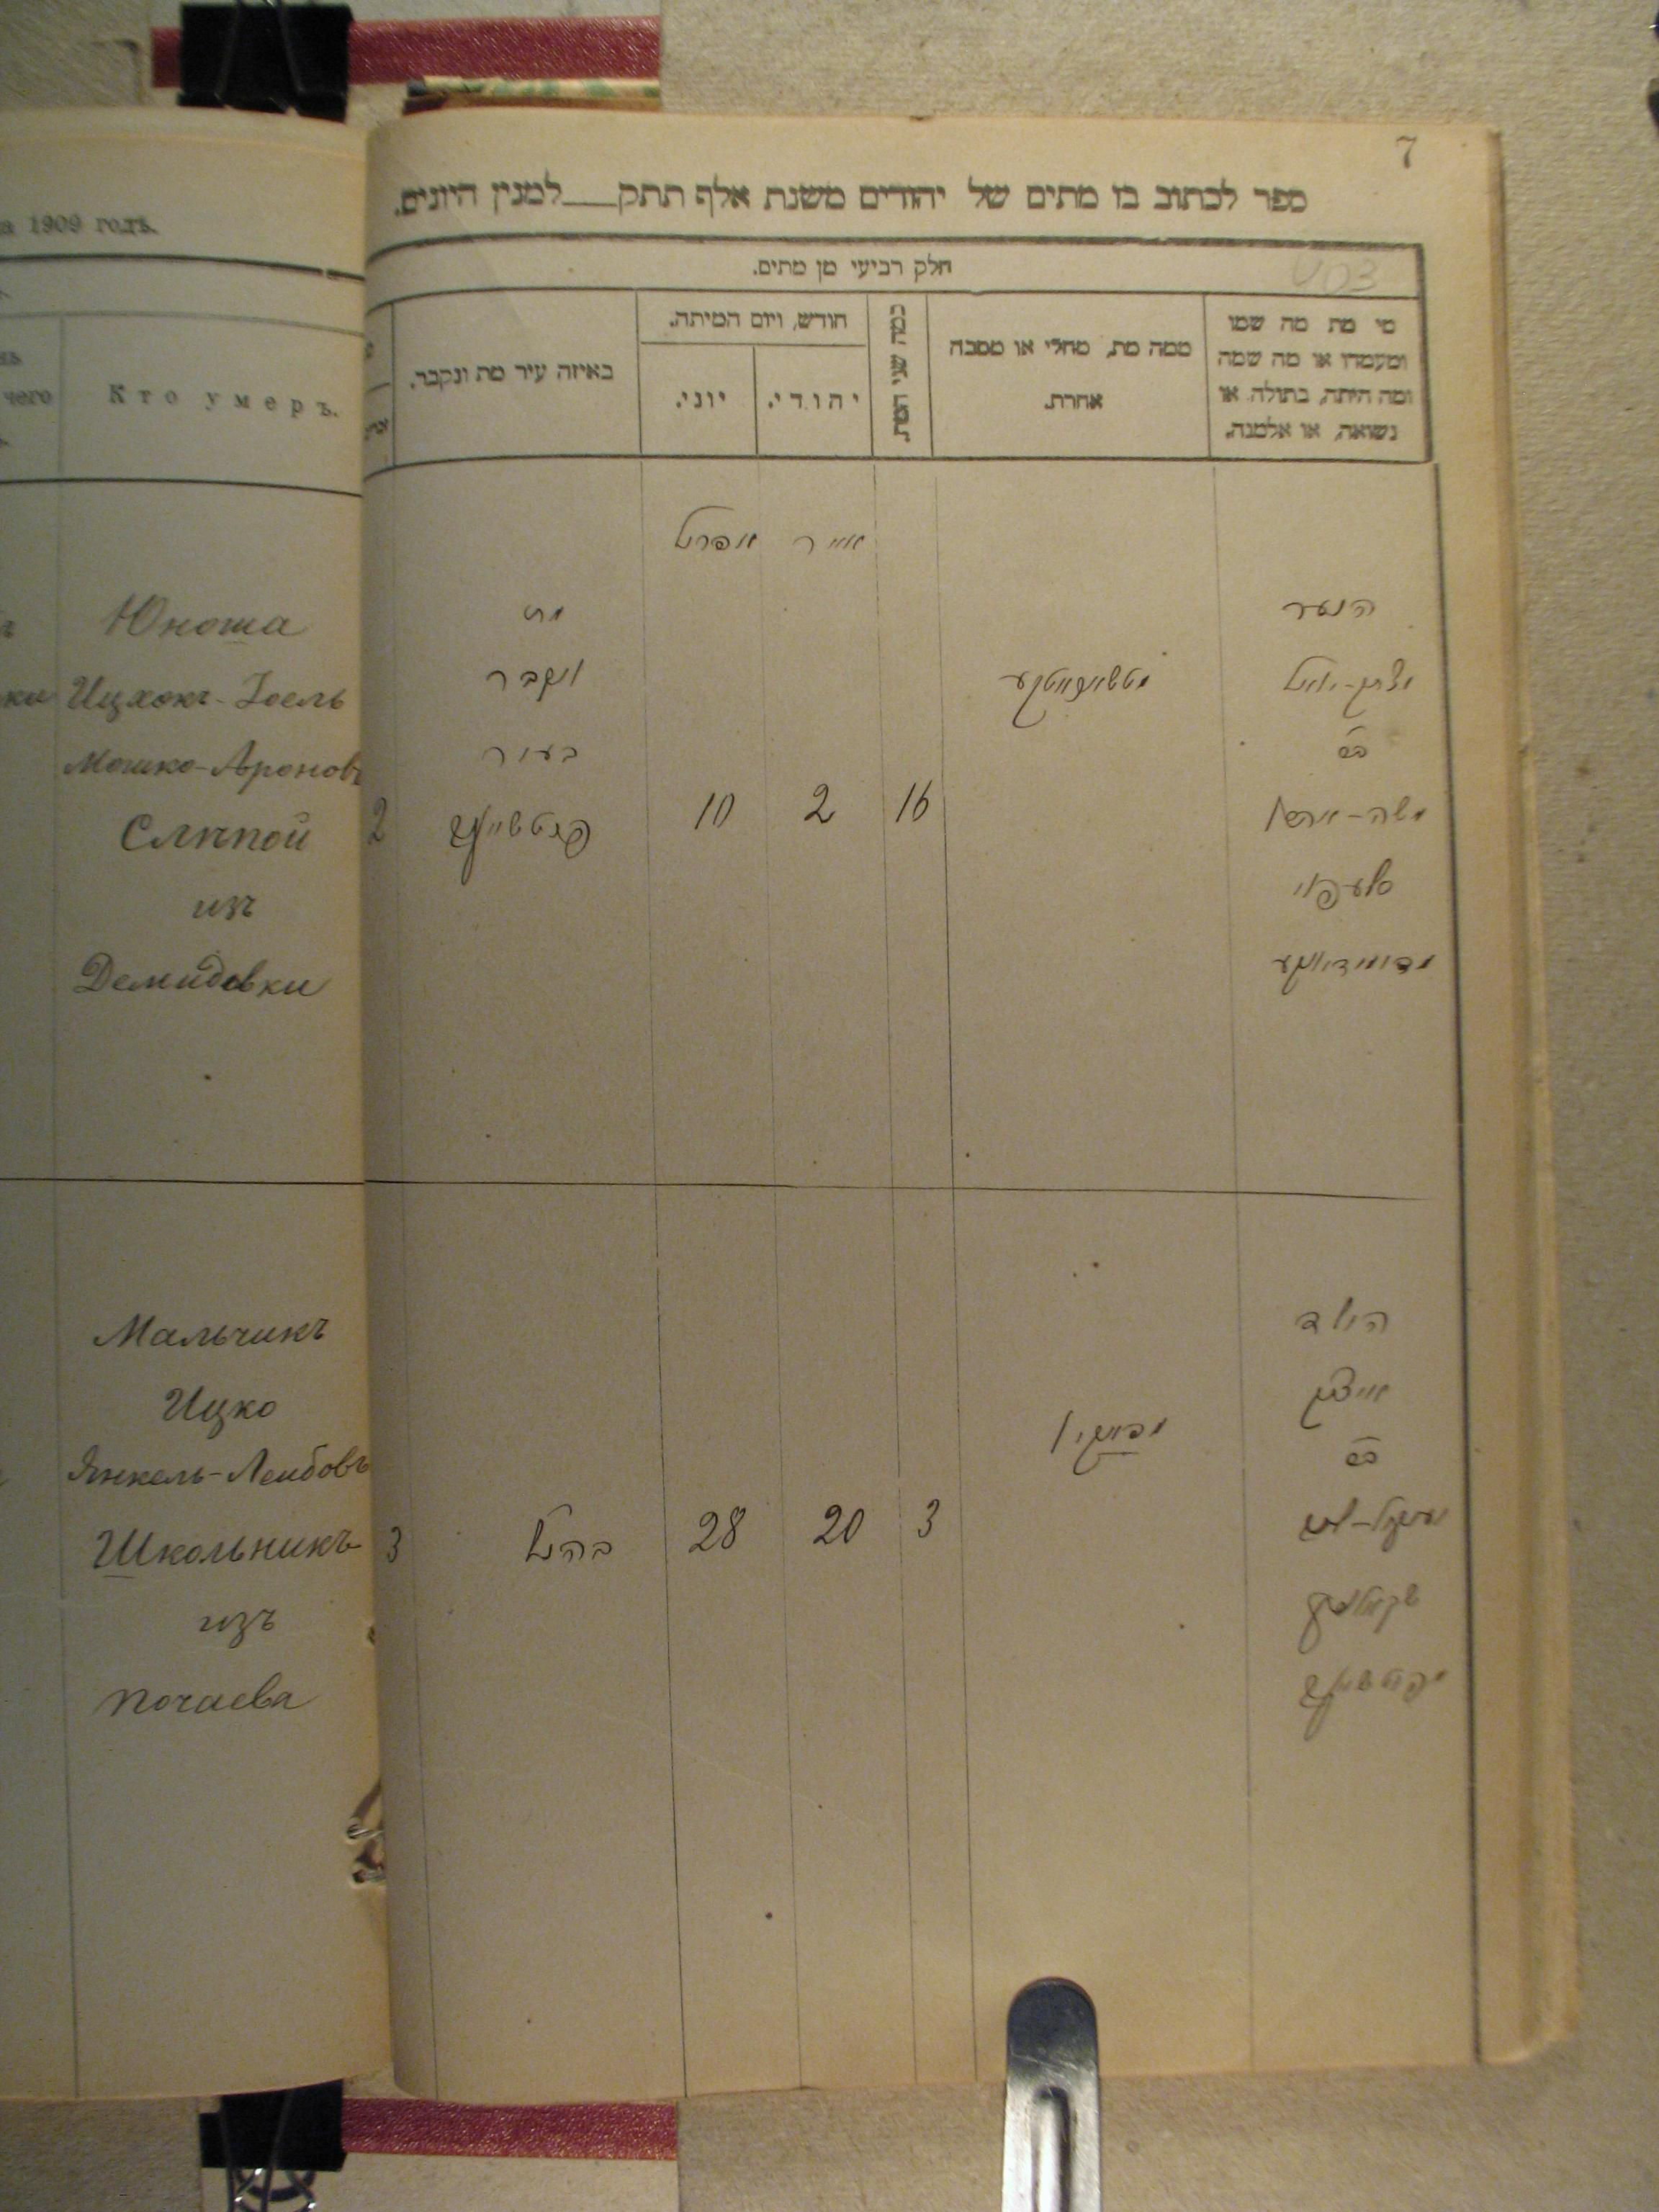 а 1909 годъ.
чего
Кто умеръ.
Юноша
Ицхокъ-Іоель
Мошко-Ароновъ
Слѣпой
изъ
Демидовки
Мальчикъ
Ицко
Янкель-Лейбовъ
Школьникъ
изъ
Почаева
7
ספר לכתוב בו מתים של יהודים משנת אלף תתק למנין היונים.
חלק רביעי מן מתים.
מי מת מה שמו
ומעמדו או מה שמה
ומה היתה, בתולה או
נשואה, או אלמנה.
ממה מת, מחלי או מסבה
אחרת.
כמה שני המת.
חודש, ויום המיתה.
יהודי.
יוני.
באיזה עיר מת ונקבר.
אייר
אפריל
הנער
יצחק-יואל
משה-אהרן
סלעפוי
16
2
10
מת
ונקבר
בעיר
2
הילד
איצק
יענקל-ליב
3
20
28
כהנ"ל
3